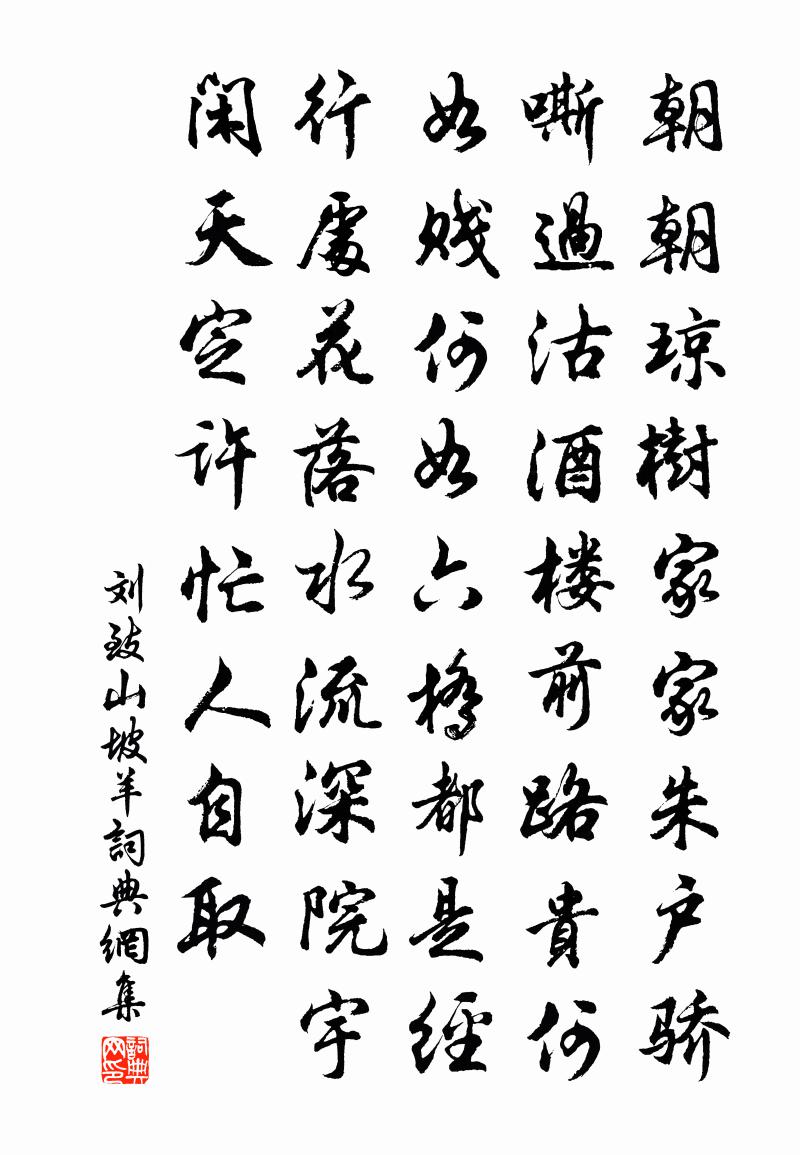 朝朝琼樹家家朱户骄
嘶過沽酒楼前路貴何
如贱何如六橋都是經
行處花落水流深院宇
闲天定許忙人自取
刘致山坡羊詞典網集
詞典网印